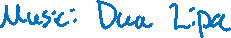 Music: Dua Lipa